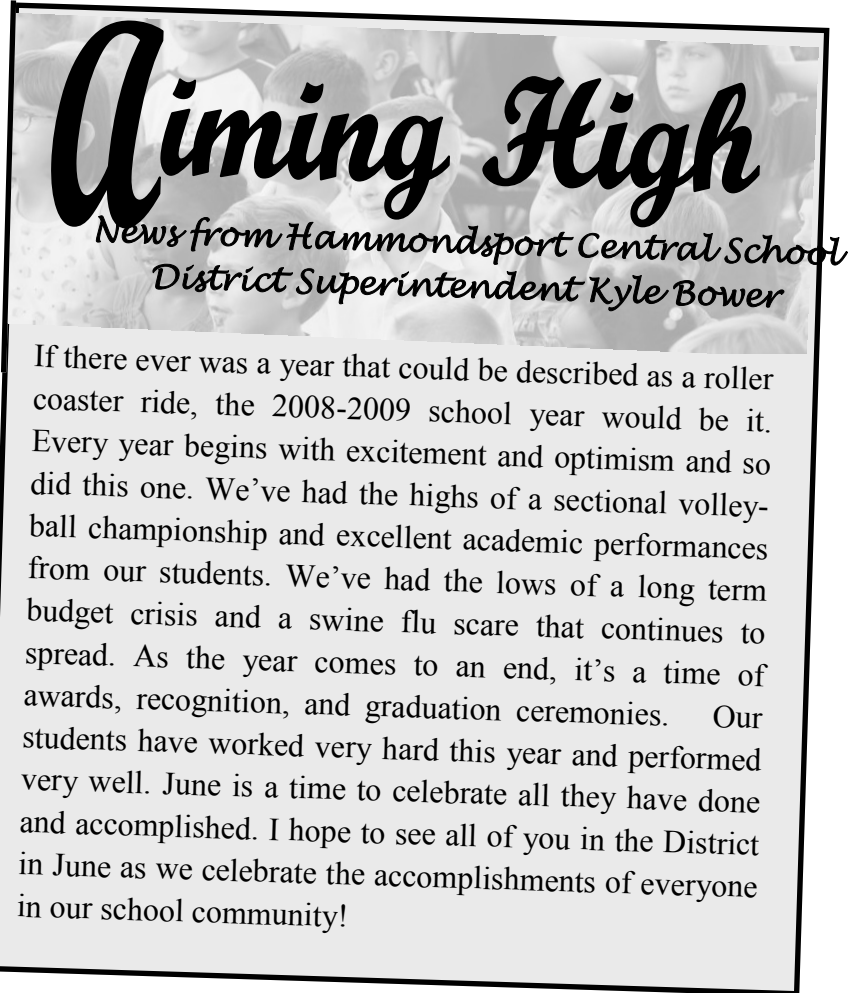 Aiming High
News from Hammondsport Central School
District Superintendent Kyle Bower
If there ever was a year that could be described as a roller
coaster ride, the 2008-2009 school year would be it.
Every year begins with excitement and optimism and so
did this one. We’ve had the highs of a sectional volley-
ball championship and excellent academic performances
from our students. We’ve had the lows of a long term
budget crisis and a swine flu scare that continues to
spread. As the year comes to an end, it’s a time of
awards, recognition, and graduation ceremonies.   Our
students have worked very hard this year and performed
very well. June is a time to celebrate all they have done
and accomplished. I hope to see all of you in the District
in June as we celebrate the accomplishments of everyone
in our school community!